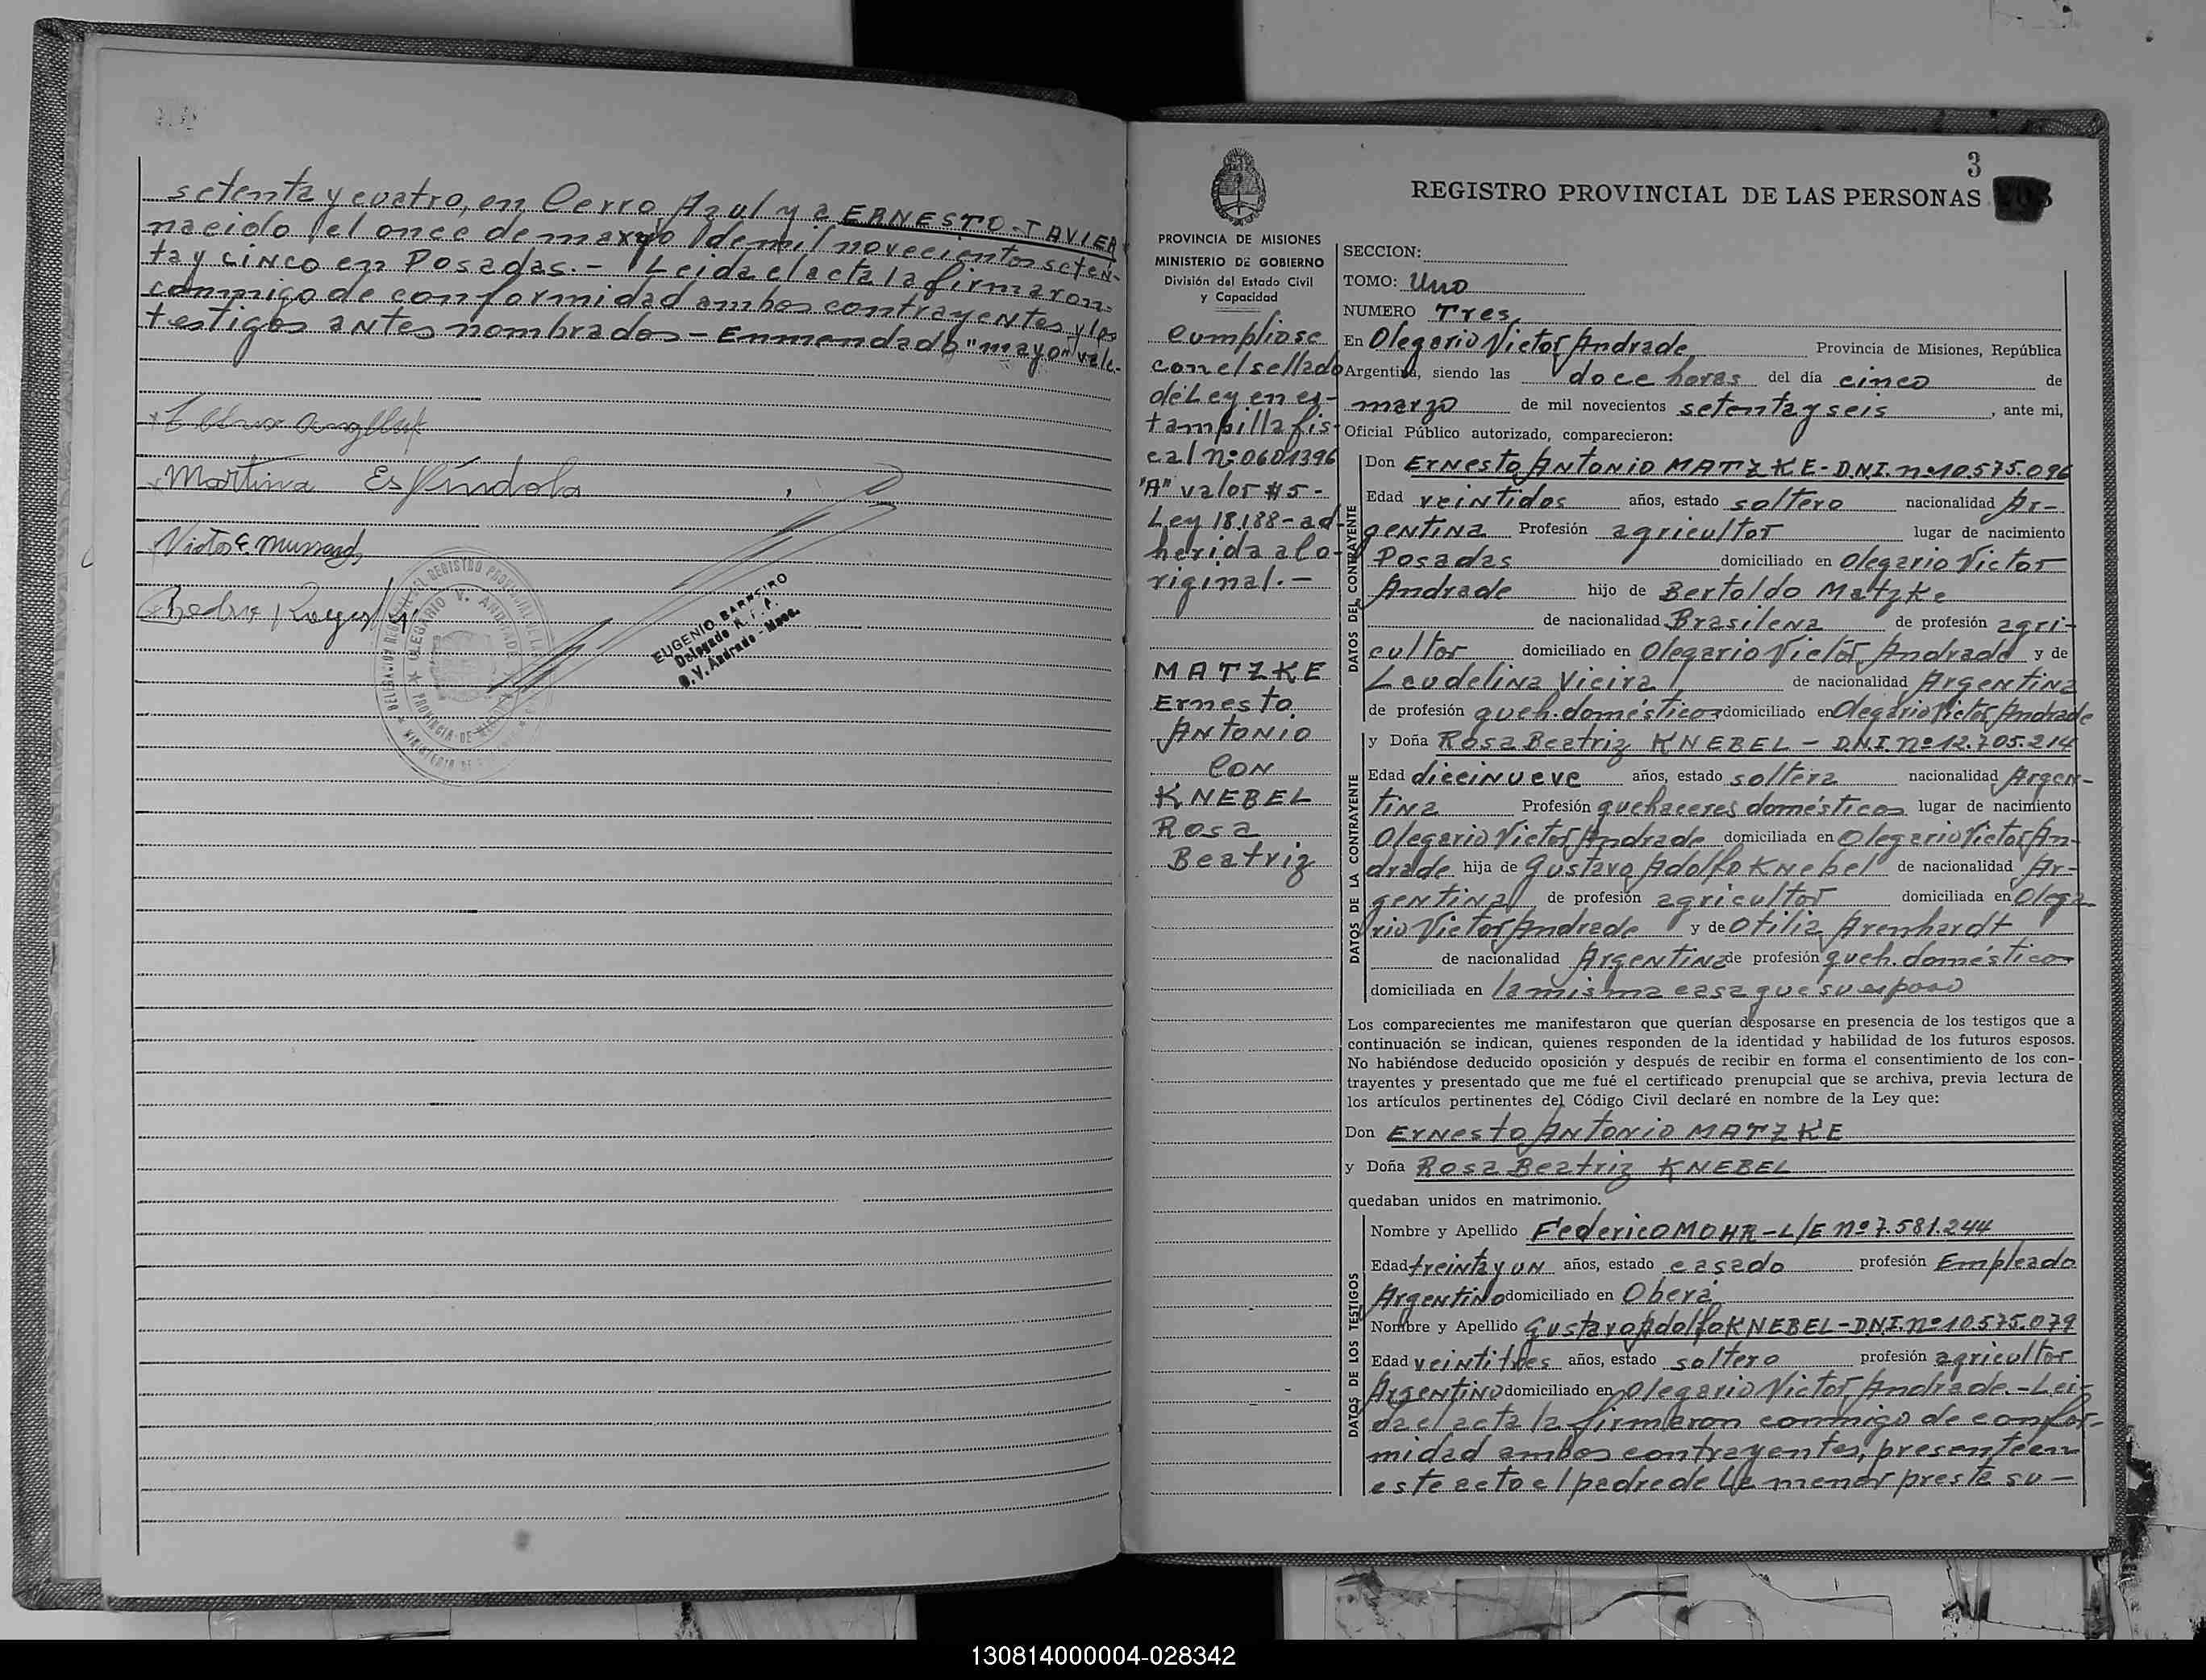 setenta y cuatro, en Cerro Azul y a ERNESTO JAVIER
nacido el once de mayo de mil novecientos seten-
ta y cinco en Posadas.- Leida el acta la firmaron
conmigo de conformidad ambos contrayentes y los
testigos antes nombrados - Enmendado "mayo" vale.-
Martina Espíndola
Victor
Pedro
EUGENIO BARREIRO
Delegado R. P. P.
O. V. Andrade - Mnes.
3
REGISTRO PROVINCIAL DE LAS PERSONAS
PROVINCIA DE MISIONES
MINISTERIO DE GOBIERNO
División del Estado Civil
y Capacidad
Cumpliose
con el sellado
de Ley en es-
tampilla fis-
cal nº 0601396
"A" valor $5-
Ley 18.188- ad-
herida al o-
riginal.-
MATZKE
Ernesto
Antonio
CON
KNEBEL
Rosa
Beatriz
SECCION:
TOMO: Uno
NUMERO Tres
En Olegario Victor Andrade Provincia de Misiones, República
Argentina, siendo las doce horas del día cinco de
marzo de mil novecientos setenta y seis, ante mi,
Oficial Público autorizado, comparecieron:
DATOS DEL CONTRAYENTE
Don Ernesto Antonio MATZKE - D.N.I. nº 10.575.096
Edad veintidos años, estado soltero nacionalidad Ar-
gentina Profesión agricultor lugar de nacimiento
Posadas domiciliado en Olegario Victor
Andrade hijo de Bertoldo Matzke
de nacionalidad Brasilena de profesión agri-
cultor domiciliado en Olegario Victor Andrade y de
Laudelina Vieira de nacionalidad Argentina
de profesión queh. domésticos domiciliado en Olegario Victor Andrade
DATOS DE LA CONTRAYENTE
y Doña Rosa Beatriz KNEBEL - D.N.I. nº 12.705.214
Edad diecinueve años, estado soltera nacionalidad Argen-
tina Profesión quehaceres domésticos lugar de nacimiento
Olegario Victor Andrade domiciliada en Olegario Victor An-
drade hija de Gustavo Adolfo Knebel de nacionalidad Ar-
gentina de profesión agricultor domiciliada en Olega-
rio Victor Andrade y de Otilia Arenhardt
de nacionalidad Argentina de profesión queh. domésticos
domiciliada en la misma casa que su esposo
Los comparecientes me manifestaron que querían desposarse en presencia de los testigos que a
continuación se indican, quienes responden de la identidad y habilidad de los futuros esposos.
No habiéndose deducido oposición y después de recibir en forma el consentimiento de los con-
trayentes y presentado que me fué el certificado prenupcial que se archiva, previa lectura de
los artículos pertinentes del Código Civil declaré en nombre de la Ley que:
Don Ernesto Antonio MATZKE
y Doña Rosa Beatriz KNEBEL
quedaban unidos en matrimonio.
DATOS DE LOS TESTIGOS
Nombre y Apellido Federico MOHR - L/E nº 7.581.244
Edad treinta y un años, estado casado profesión Empleado
Argentino domiciliado en Oberá
Nombre y Apellido Gustavo Adolfo KNEBEL - DNI. nº 10.575.079
Edad veintitres años, estado soltero profesión agricultor
Argentino domiciliado en Olegario Victor Andrade.- Lei-
da el acta la firmaron conmigo de confor-
midad ambos contrayentes, presente en
este acto el padre de la menor presta su -
130814000004-028342